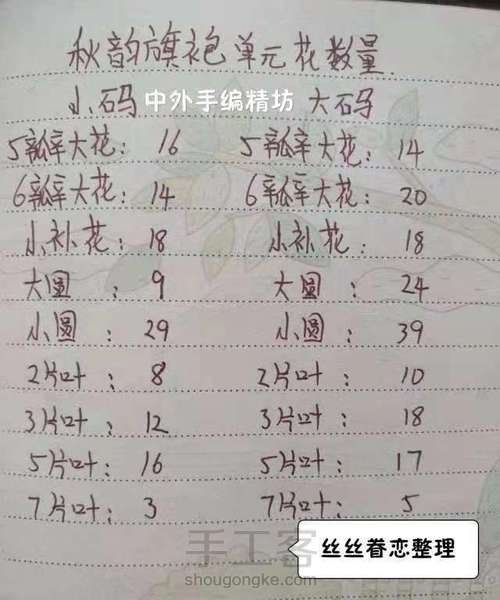 秋韵旗袍单元花数量
小码 中外手编精坊 大码
5瓣大花: 16 5瓣大花: 14
6瓣大花: 14 6瓣大花: 20
小补花: 18 小补花: 18
大圆: 9 大圆: 24
小圆: 29 小圆: 39
2片叶: 8 2片叶: 10
3片叶: 12 3片叶: 18
5片叶: 16 5片叶: 17
7片叶: 3 7片叶: 5
丝丝眷恋整理
手工客
shougongke.com